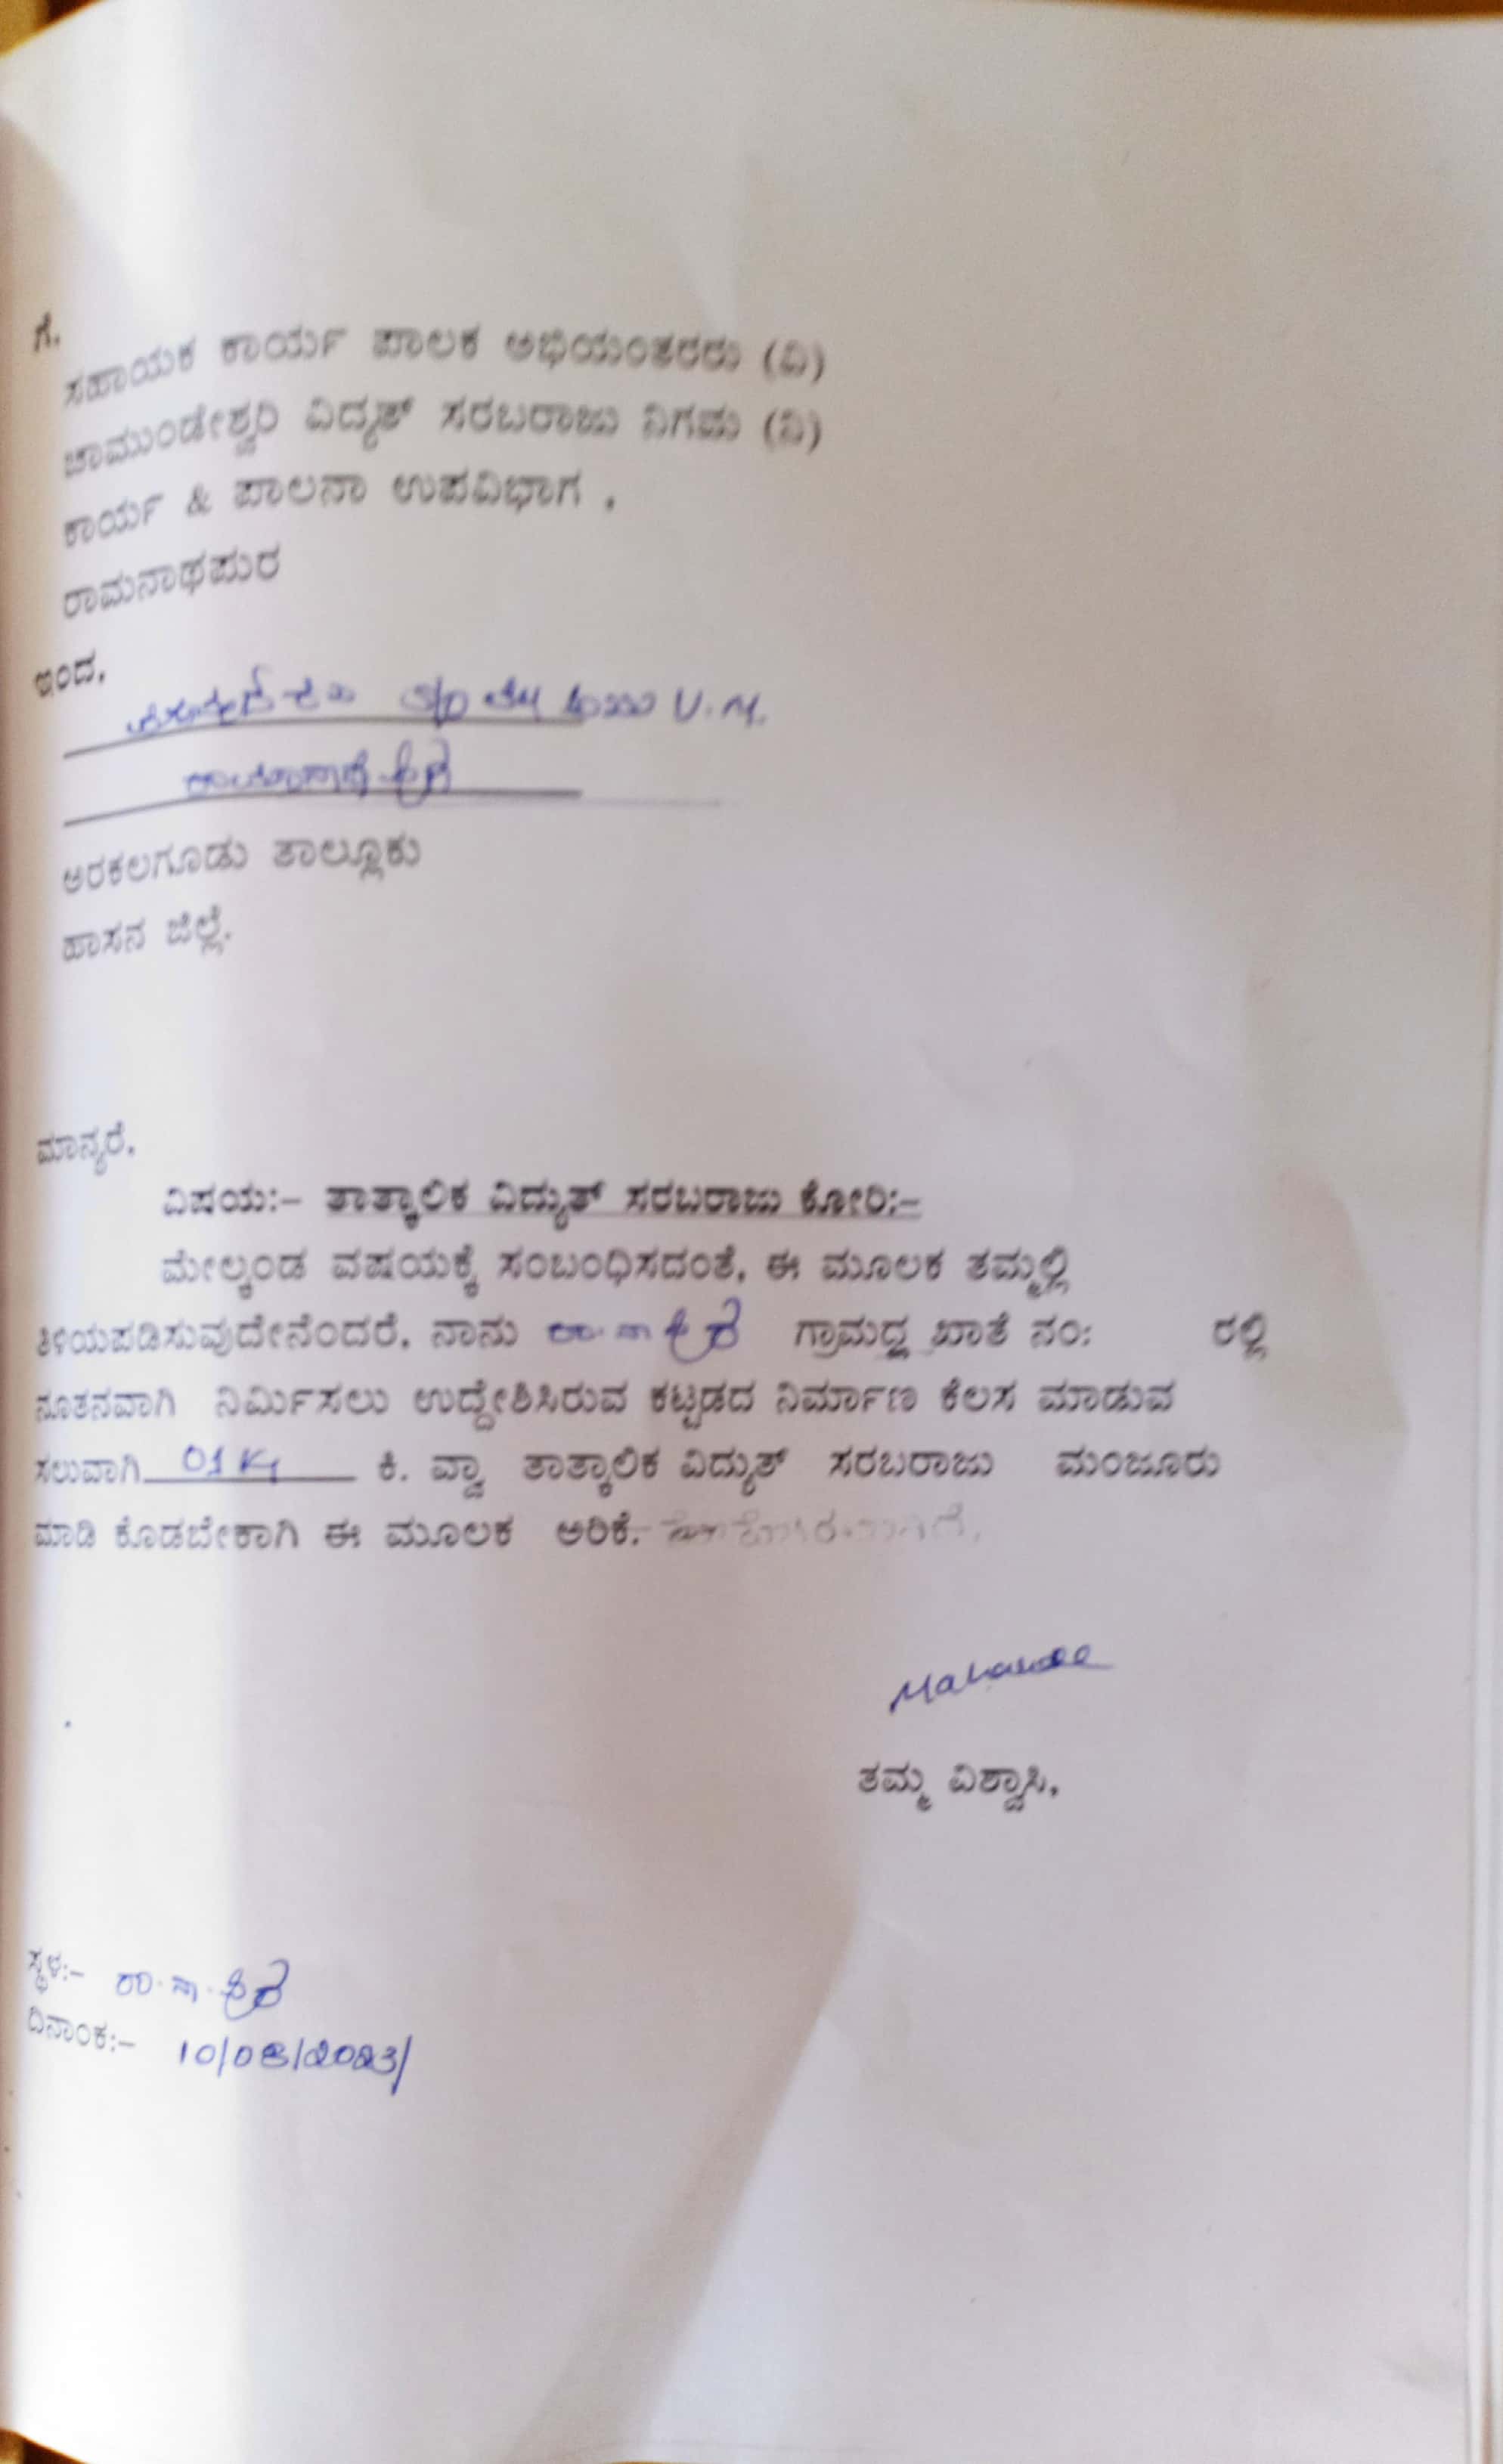 ಗೆ.
ಸಹಾಯಕ ಕಾರ್ಯ ಪಾಲಕ ಅಭಿಯಂತರರು (ವಿ)
ಚಾಮುಂಡೇಶ್ವರಿ ವಿದ್ಯುತ್ ಸರಬರಾಜು ನಿಗಮ (ನಿ)
ಕಾರ್ಯ & ಪಾಲನಾ ಉಪವಿಭಾಗ ,
ರಾಮನಾಥಪುರ
ಇಂದ,
U.M.
ಅರಕಲಗೂಡು ತಾಲ್ಲೂಕು
ಹಾಸನ ಜಿಲ್ಲೆ.
ಮಾನ್ಯರೆ,
ವಿಷಯ:- ತಾತ್ಕಾಲಿಕ ವಿದ್ಯುತ್ ಸರಬರಾಜು ಕೋರಿ:-
ಮೇಲ್ಕಂಡ ವಷಯಕ್ಕೆ ಸಂಬಂಧಿಸದಂತೆ, ಈ ಮೂಲಕ ತಮ್ಮಲ್ಲಿ
ತಿಳಿಯಪಡಿಸುವುದೇನೆಂದರೆ, ನಾನು ಗ್ರಾಮದ್ಲ ಖಾತೆ ನಂ: ರಲ್ಲಿ
ನೂತನವಾಗಿ ನಿರ್ಮಿಸಲು ಉದ್ದೇಶಿಸಿರುವ ಕಟ್ಟಡದ ನಿರ್ಮಾಣ ಕೆಲಸ ಮಾಡುವ
ಸಲುವಾಗಿ 01 ಕಿ. ವ್ವಾ ತಾತ್ಕಾಲಿಕ ವಿದ್ಯುತ್ ಸರಬರಾಜು ಮಂಜೂರು
ಮಾಡಿ ಕೊಡಬೇಕಾಗಿ ಈ ಮೂಲಕ ಅರಿಕೆ.
ತಮ್ಮ ವಿಶ್ವಾಸಿ,
ಸ್ಥಳ:- ರಾ.ಸಾ.ಕೆರೆ
ದಿನಾಂಕ:- 10/08/2023/